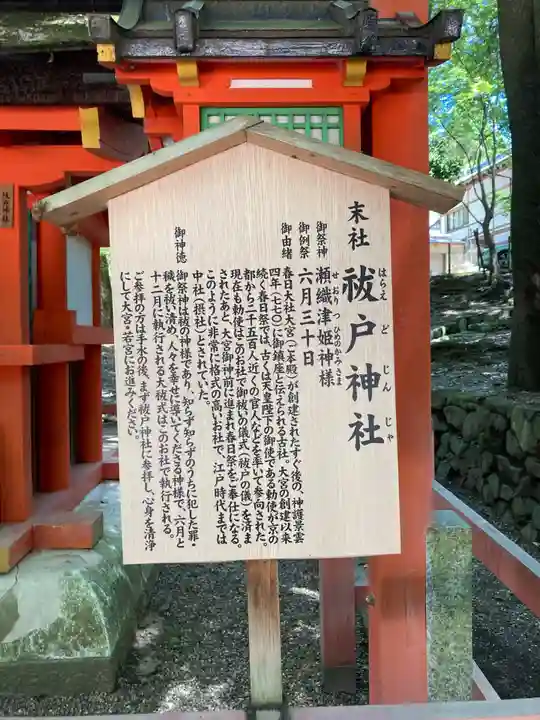 末社 祓戸神社
はらえどじんじゃ
御祭神 瀬織津姫神様
せおりつひめのかみさま
御例祭 六月三十日
御由緒
春日大社大宮(本殿)が創建されたすぐ後の、神護景雲
四年(七七〇)に御鎮座と伝えられる古社。大宮の創建以来
続く春日祭では、古くは天皇陛下の御使である勅使が京の
都から二千五百人近くの官人などを率いて参向された。
現在も勅使はこのお社で御祓いの儀式(祓戸の儀)を済ま
されたあと、大宮御神前に進まれ春日祭をご奉仕になる。
このように非常に格式の高いお社で、江戸時代までは
中社(摂社)とされていた。
御神徳
御祭神は祓の神様であり、知らず知らずのうちに犯した罪・
穢を祓い清め、人々を幸せに導いてくださる神様で、六月と
十二月に執行される大祓式はこのお社で執行される。
ご参拝の方は手水の後、まず祓戸神社に参拝し、心身を清浄
にして大宮・若宮にお進みください。